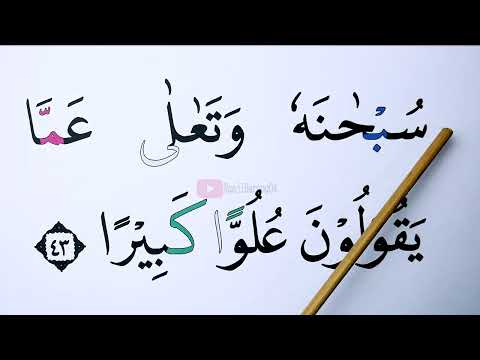 سُبْحٰنَهٗ وَتَعٰلٰى عَمَّا
يَقُوْلُوْنَ عُلُوًّا كَبِيْرًا ٤٣